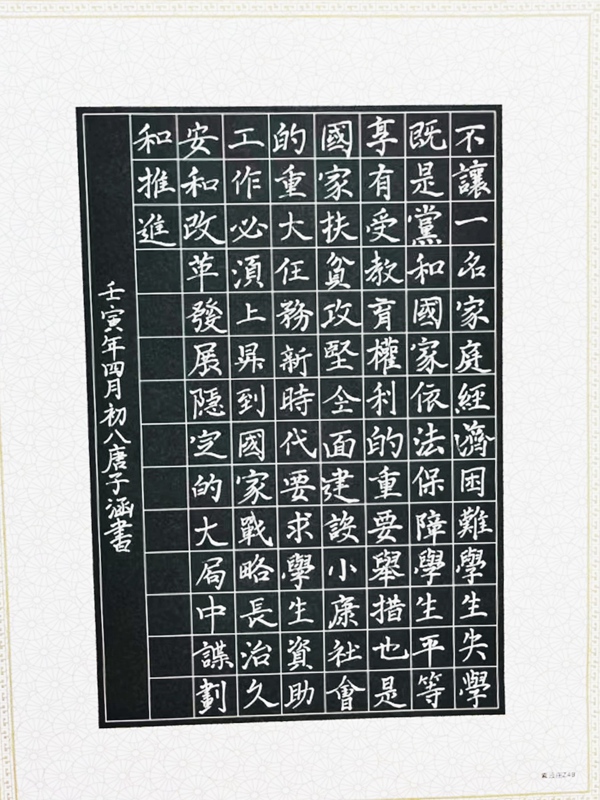 不讓一名家庭經濟困難學生失學
既是黨和國家依法保障學生平等
享有受教育權利的重要舉措也是
國家扶貧攻堅全面建設小康社會
的重大任務新時代要求學生資助
工作必須上昇到國家戰略長治久
安和改革發展隱定的大局中謀劃
和推進
壬寅年四月初八唐子涵書